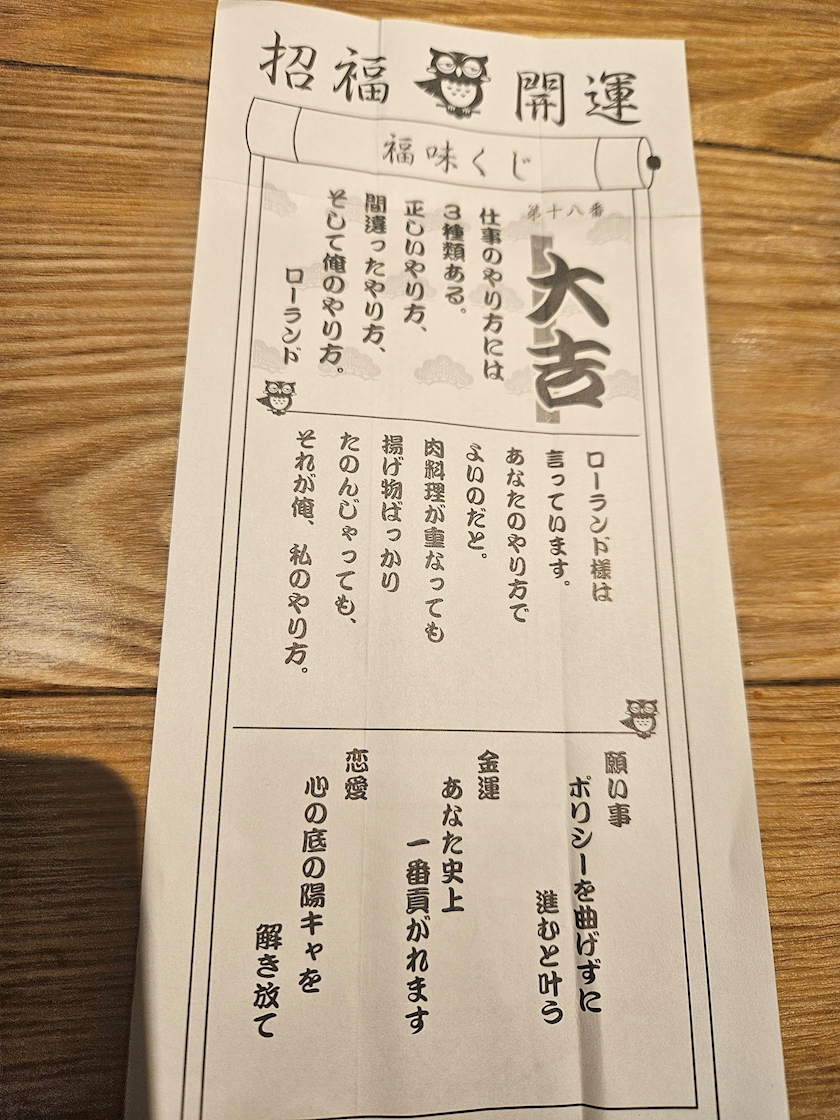 招福 開運
福味くじ
第十八番
大吉
仕事のやり方には
3種類ある。
正しいやり方、
間違ったやり方、
そして俺のやり方。
ローランド
ローランド様は
言っています。
あなたのやり方で
よいのだと。
肉料理が重なっても
揚げ物ばっかり
たのんじゃっても、
それが俺、私のやり方。
願い事
ポリシーを曲げずに
進むと叶う
金運
あなた史上
一番貢がれます
恋愛
心の底の陽キャを
解き放て